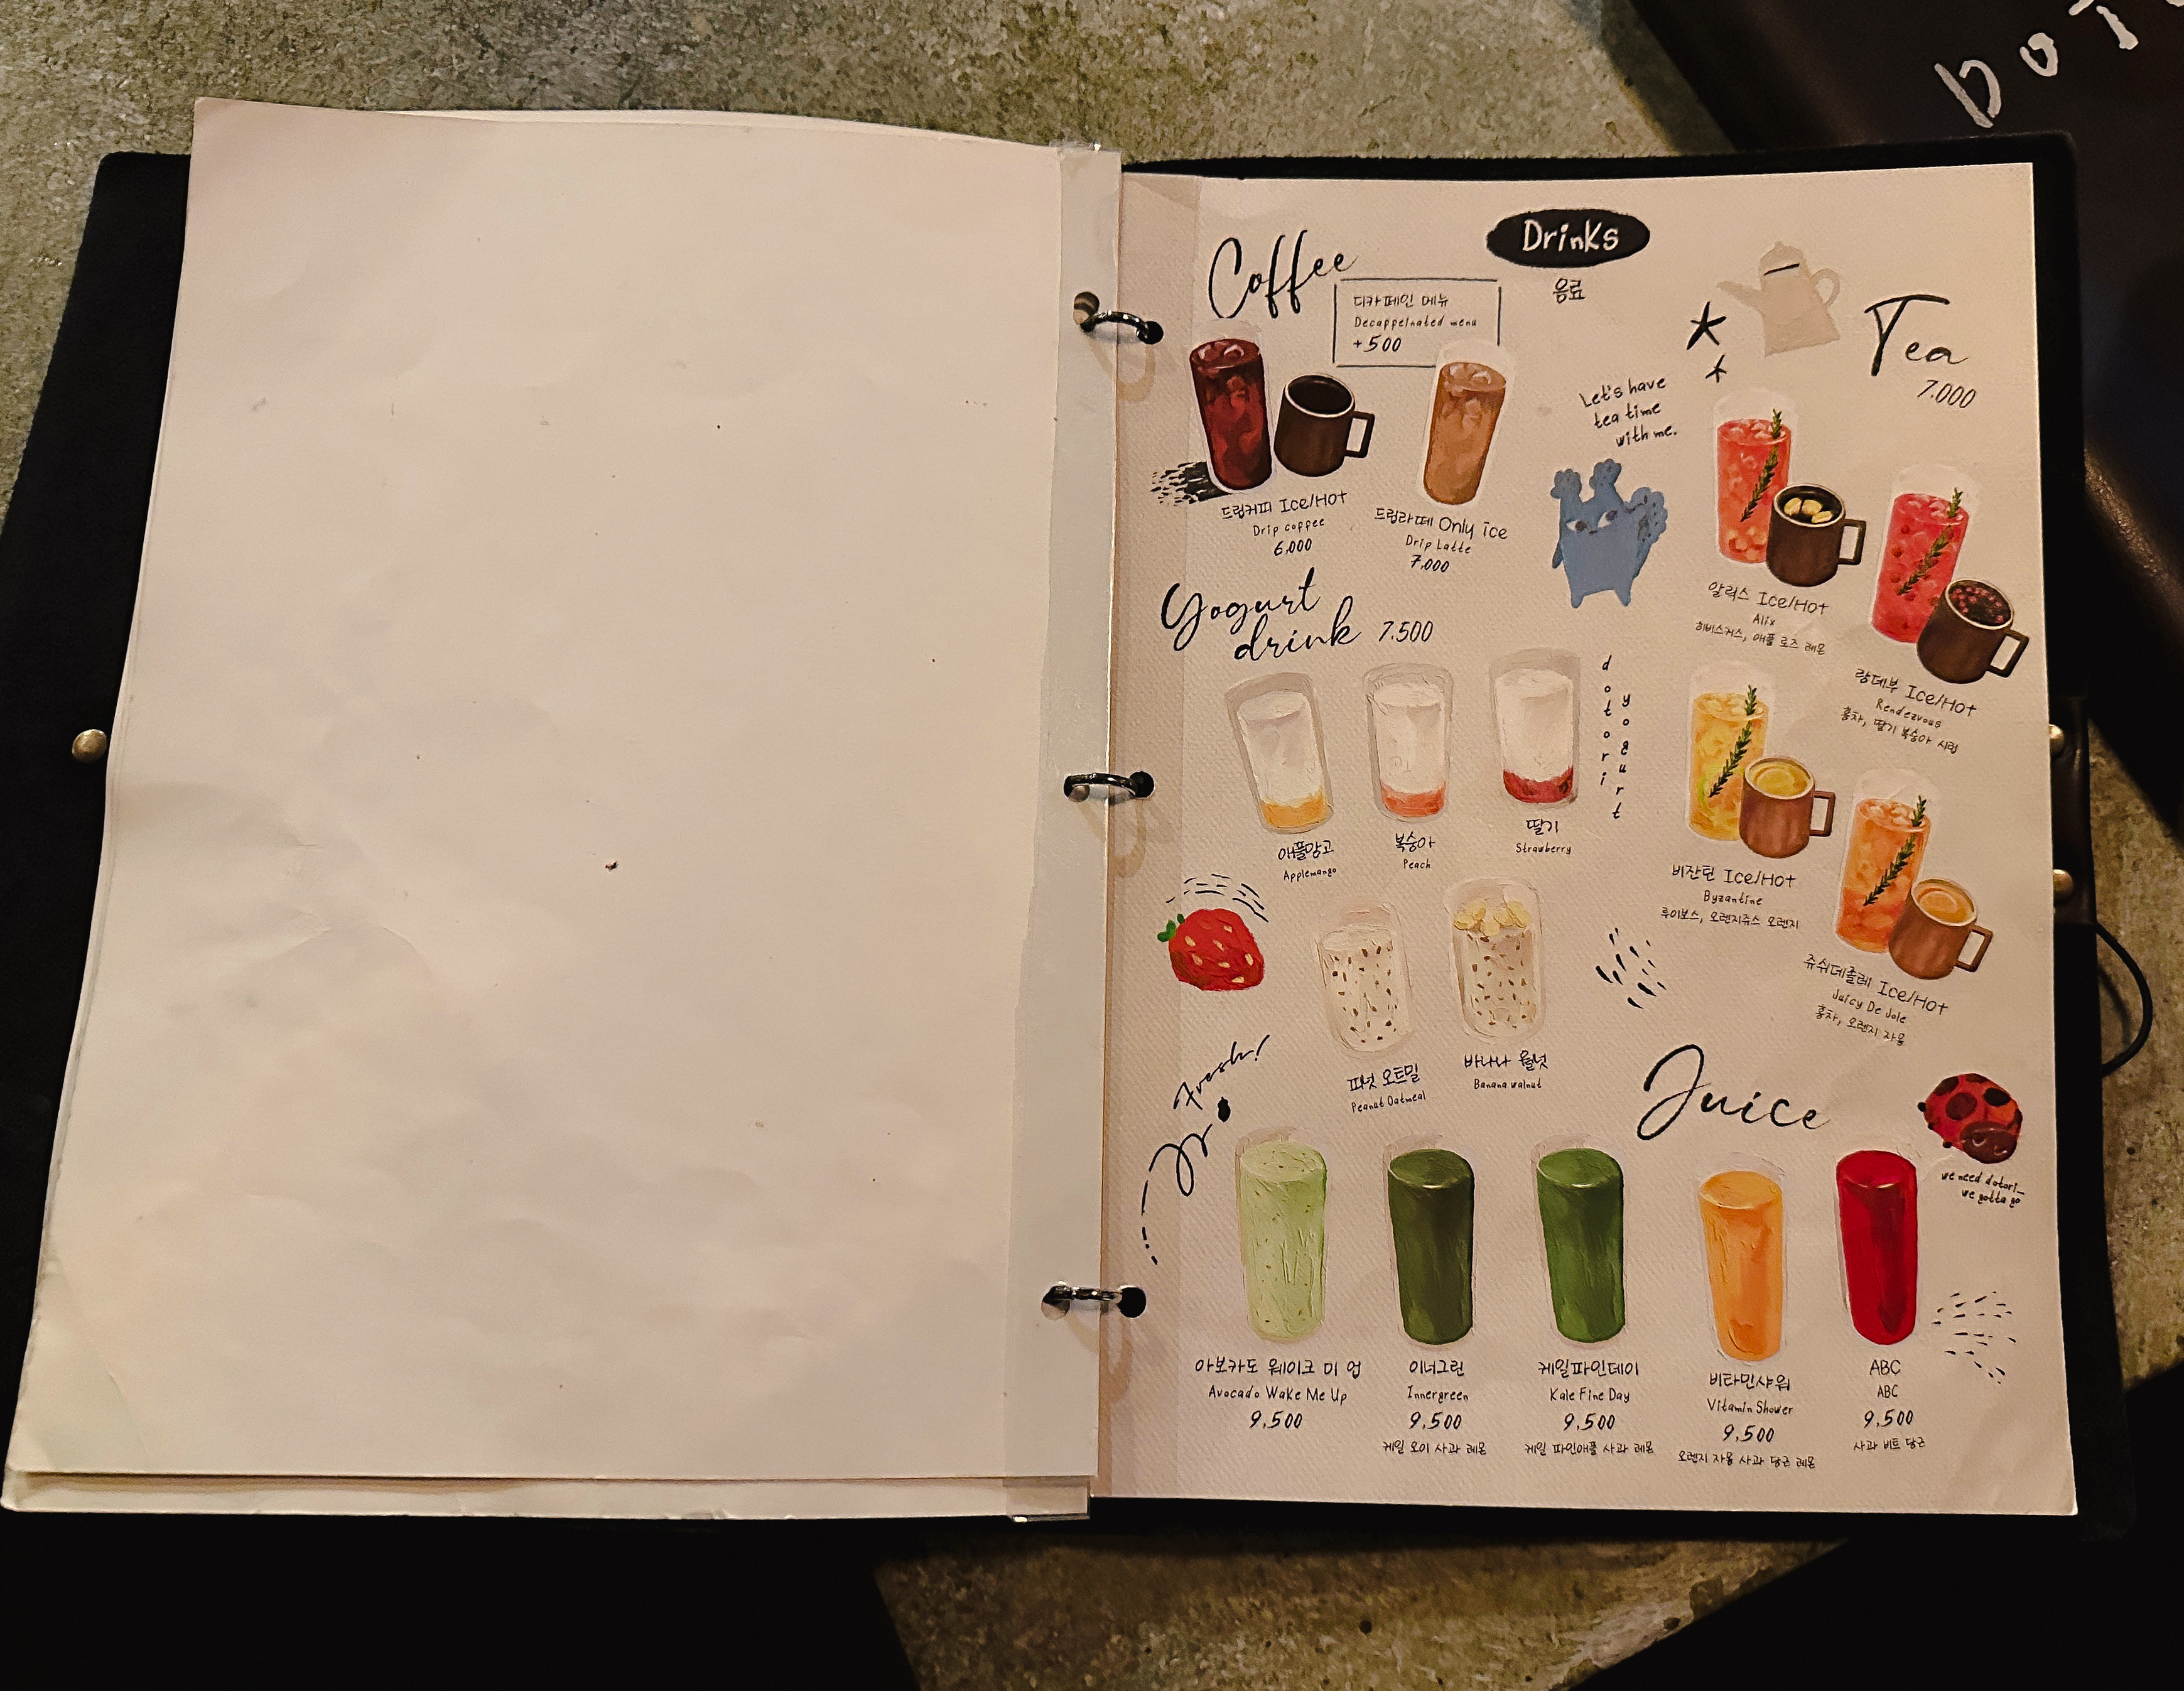 Drinks
음료
Coffee
디카페인 메뉴
Decappeinated menu
+500
드립커피 Ice/Hot
Drip coffee
6,000
드립라떼 Only ice
Drip Latte
7,000
Let's have
tea time
with me.
Tea
7,000
알릭스 Ice/Hot
Alix
히비스커스, 애플 로즈 레몬
랑데부 Ice/Hot
Rendezvous
홍차, 딸기 복숭아 시럽
비잔틴 Ice/Hot
Byzantine
루이보스, 오렌지쥬스 오렌지
쥬쉬데졸레 Ice/Hot
Juicy De Jole
홍차, 오렌지 자몽
Yogurt
drink 7,500
dotori
yogurt
애플망고
Applemango
복숭아
Peach
딸기
Strawberry
피넛 오트밀
Peanut Oatmeal
바나나 월넛
Banana walnut
Fresh!
Juice
we need dotori_
we gotta go
아보카도 웨이크 미 업
Avocado Wake Me Up
9,500
이너그린
Innergreen
9,500
케일 오이 사과 레몬
케일파인데이
Kale Fine Day
9,500
케일 파인애플 사과 레몬
비타민샤워
Vitamin Shower
9,500
오렌지 자몽 사과 당근 레몬
ABC
ABC
9,500
사과 비트 당근